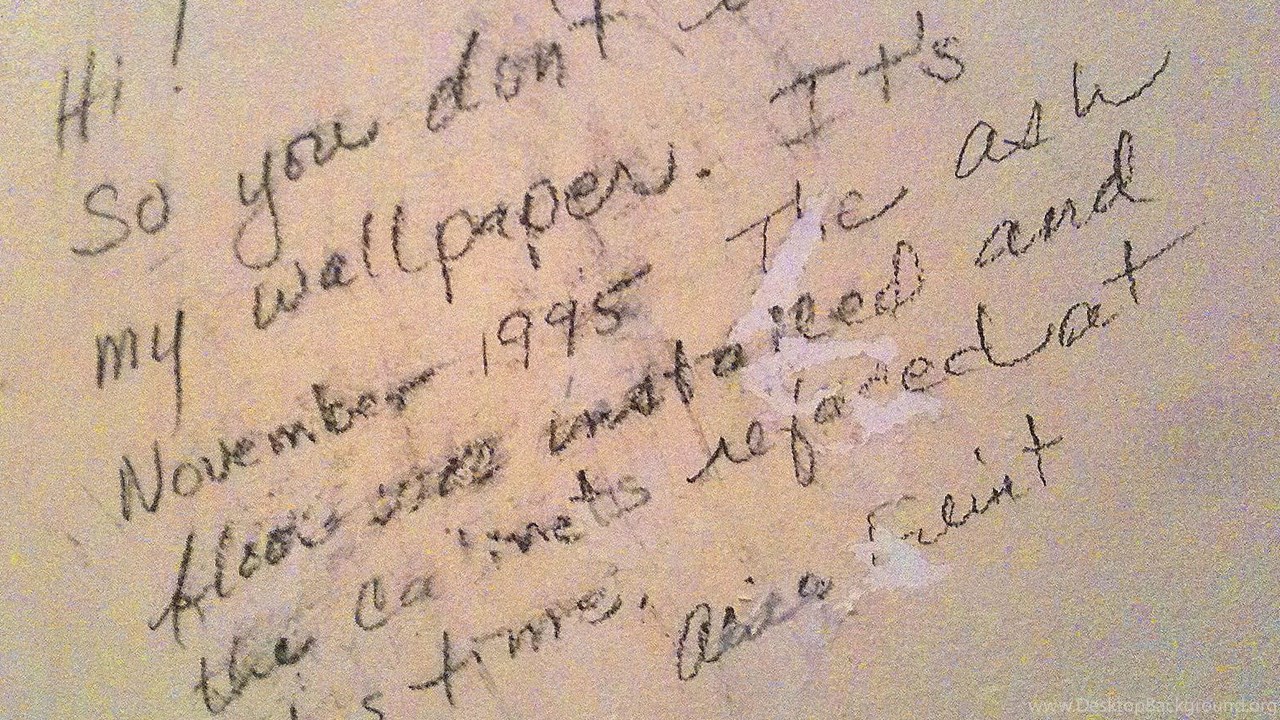 Hi!
So you don't
my wallpaper. It's
November 1995 The ash
floor was installed and
the cabinets refaced at
this time.
www.DesktopBackground.org